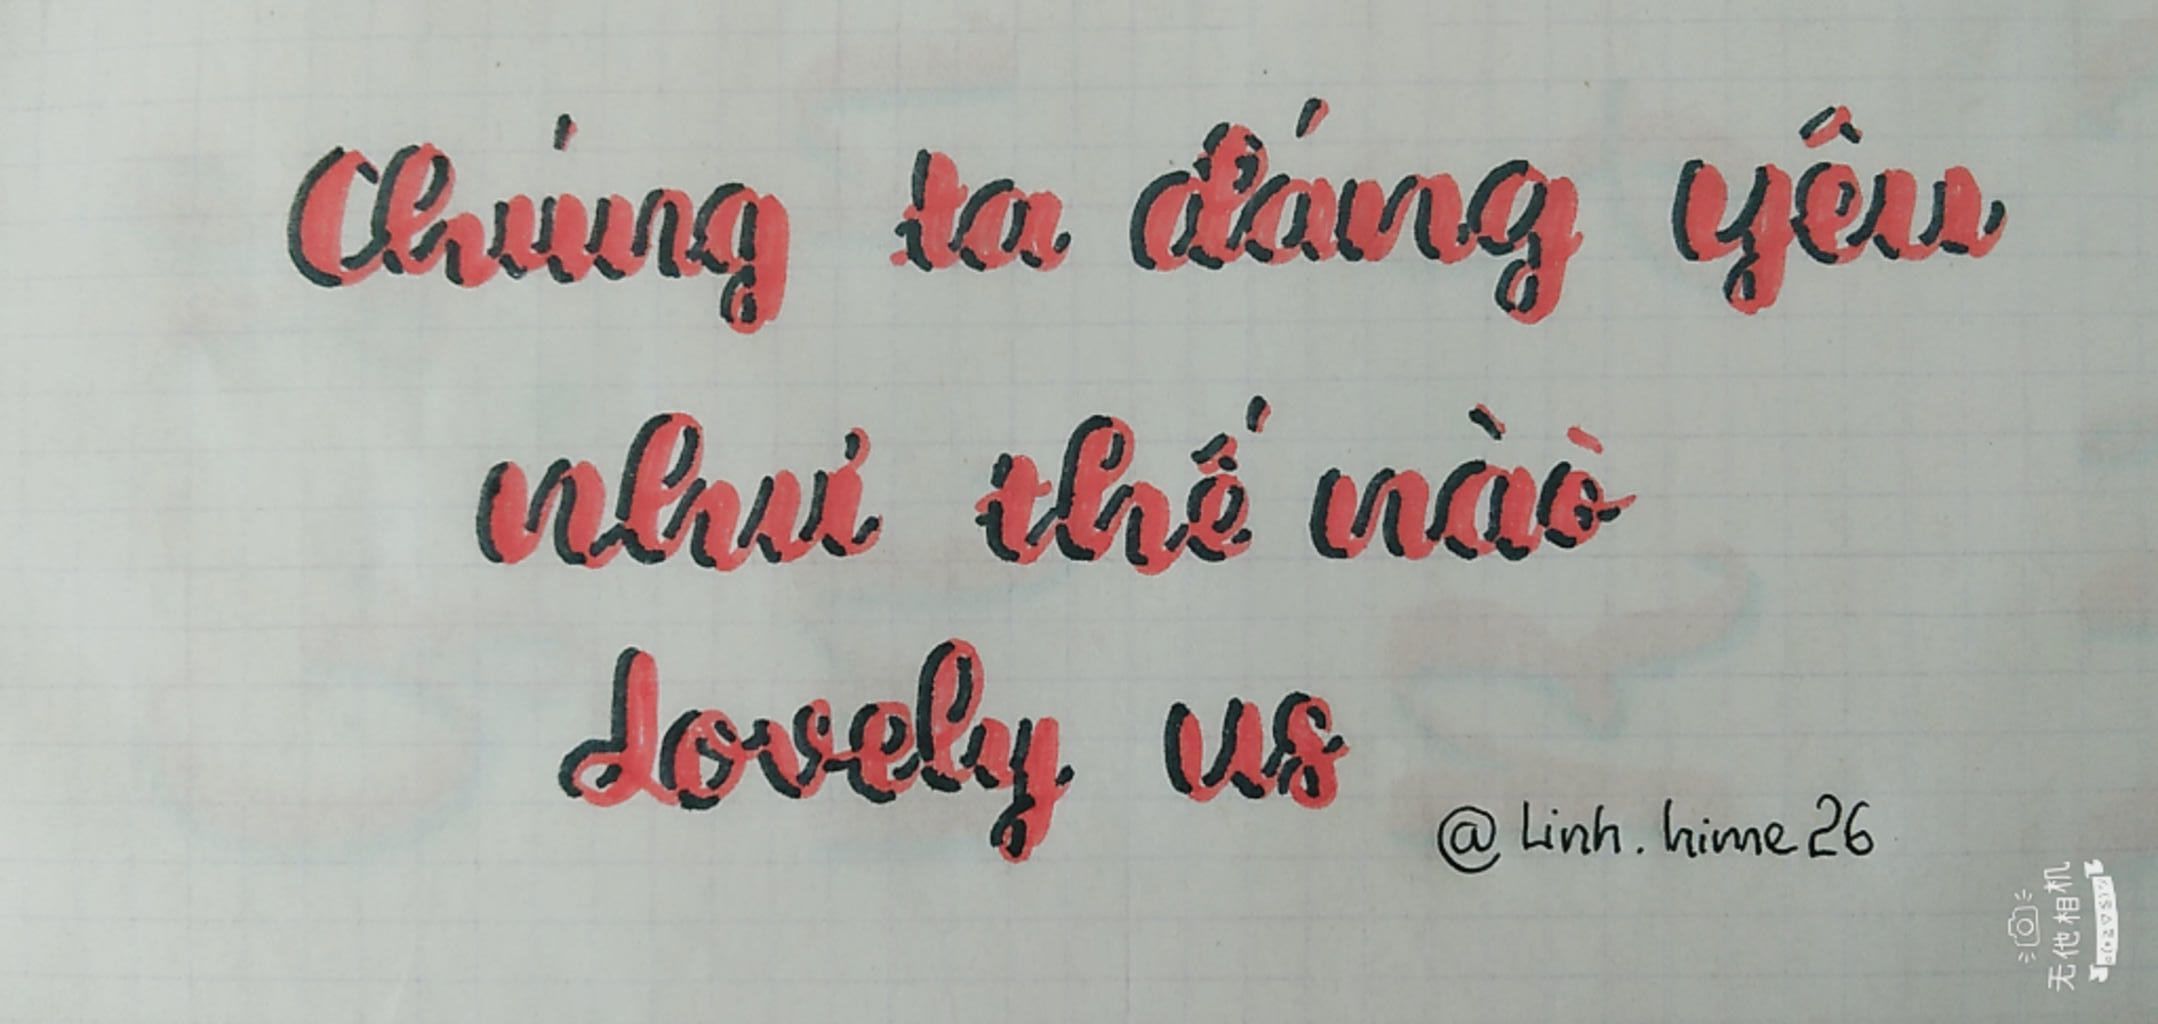 Chúng ta đáng yêu
như thế nào
Lovely us
@Linh.hime26
无他相机